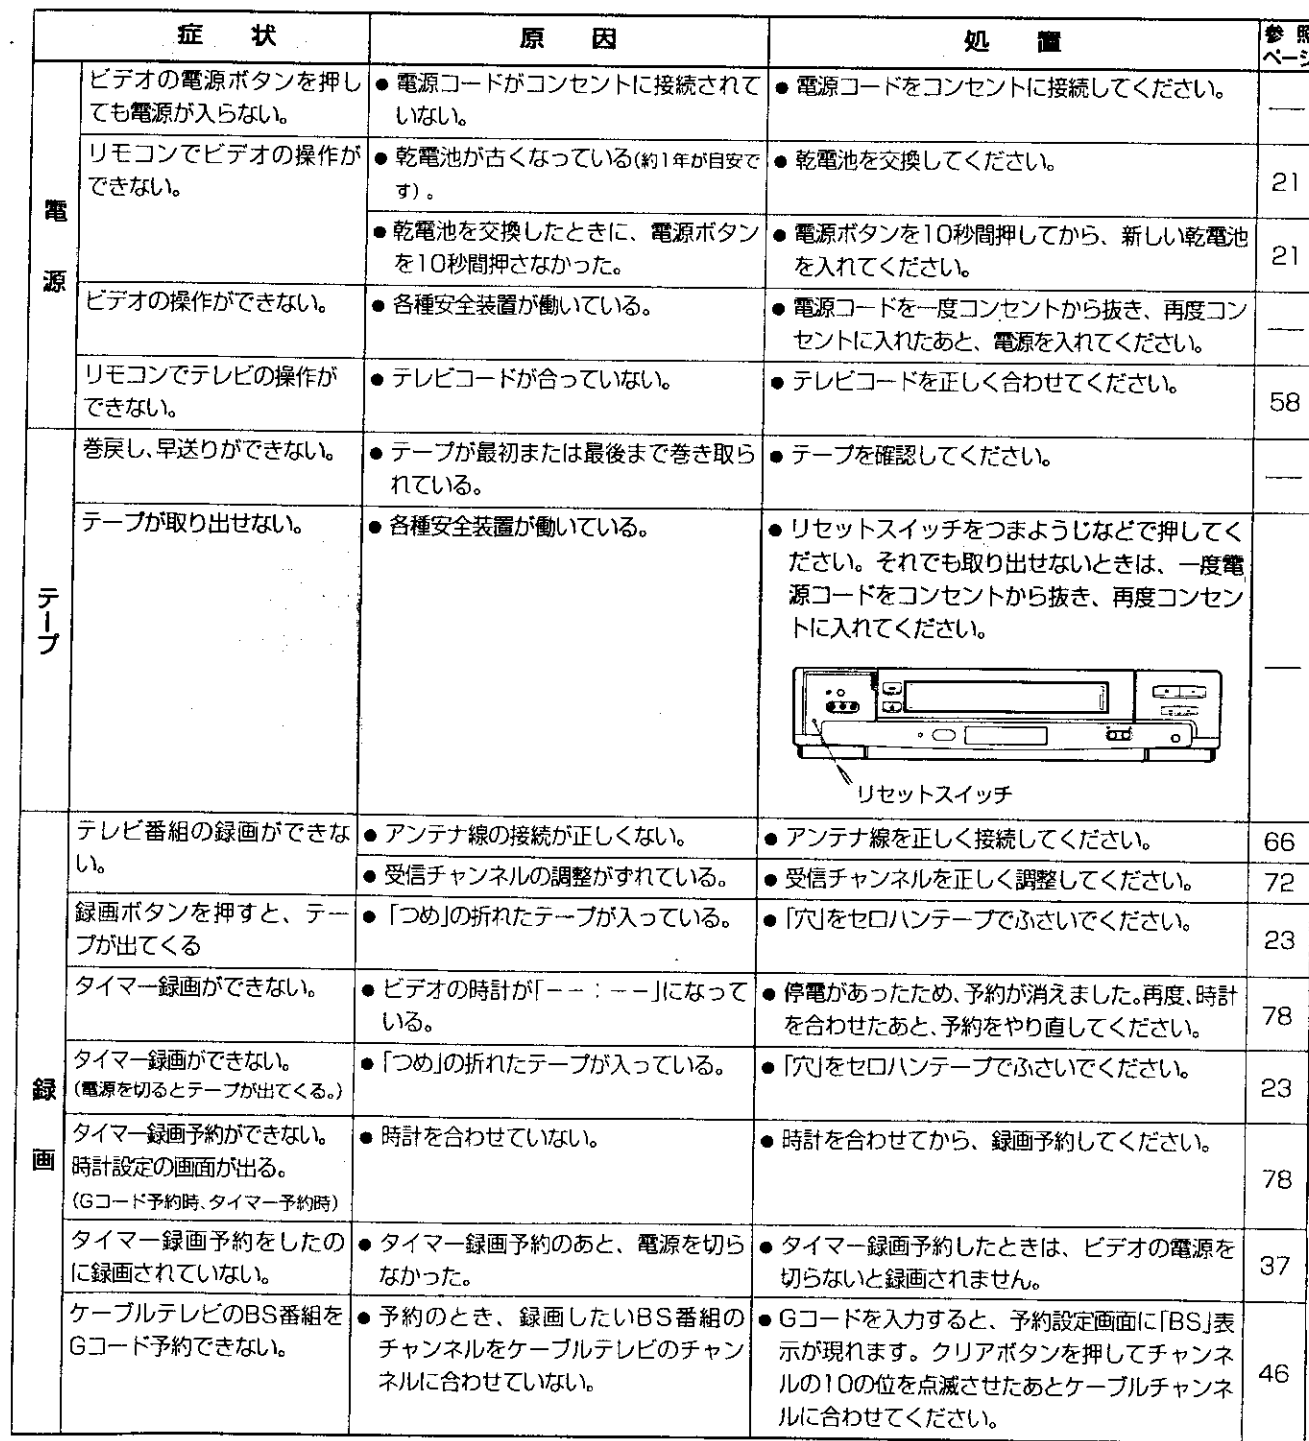 症 状
原 因
処 置
参 照
ページ
電源
ビデオの電源ボタンを押し
ても電源が入らない。
● 電源コードがコンセントに接続されて
いない。
● 電源コードをコンセントに接続してください。
—
リモコンでビデオの操作が
できない。
● 乾電池が古くなっている(約1年が目安で
す)。
● 乾電池を交換してください。
21
● 乾電池を交換したときに、電源ボタン
を10秒間押さなかった。
● 電源ボタンを10秒間押してから、新しい乾電池
を入れてください。
21
ビデオの操作ができない。
● 各種安全装置が働いている。
● 電源コードを一度コンセントから抜き、再度コン
セントに入れたあと、電源を入れてください。
—
リモコンでテレビの操作が
できない。
● テレビコードが合っていない。
● テレビコードを正しく合わせてください。
58
テープ
巻戻し、早送りができない。
● テープが最初または最後まで巻き取ら
れている。
● テープを確認してください。
—
テープが取り出せない。
● 各種安全装置が働いている。
● リセットスイッチをつまようじなどで押してく
ださい。それでも取り出せないときは、一度電
源コードをコンセントから抜き、再度コンセン
トに入れてください。
—
リセットスイッチ
録画
テレビ番組の録画ができな
い。
● アンテナ線の接続が正しくない。
● アンテナ線を正しく接続してください。
66
● 受信チャンネルの調整がずれている。
● 受信チャンネルを正しく調整してください。
72
録画ボタンを押すと、テー
プが出てくる
● 「つめ」の折れたテープが入っている。
● 「穴」をセロハンテープでふさいでください。
23
タイマー録画ができない。
● ビデオの時計が「－－：－－」になって
いる。
● 停電があったため、予約が消えました。再度、時計
を合わせたあと、予約をやり直してください。
78
タイマー録画ができない。
(電源を切るとテープが出てくる。)
● 「つめ」の折れたテープが入っている。
● 「穴」をセロハンテープでふさいでください。
23
タイマー録画予約ができない。
時計設定の画面が出る。
(Gコード予約時、タイマー予約時)
● 時計を合わせていない。
● 時計を合わせてから、録画予約してください。
78
タイマー録画予約をしたの
に録画されていない。
● タイマー録画予約のあと、電源を切ら
なかった。
● タイマー録画予約したときは、ビデオの電源を
切らないと録画されません。
37
ケーブルテレビのBS番組を
Gコード予約できない。
● 予約のとき、録画したいBS番組の
チャンネルをケーブルテレビのチャン
ネルに合わせていない。
● Gコードを入力すると、予約設定画面に「BS」表
示が現れます。クリアボタンを押してチャンネ
ルの10の位を点滅させたあとケーブルチャンネ
ルに合わせてください。
46